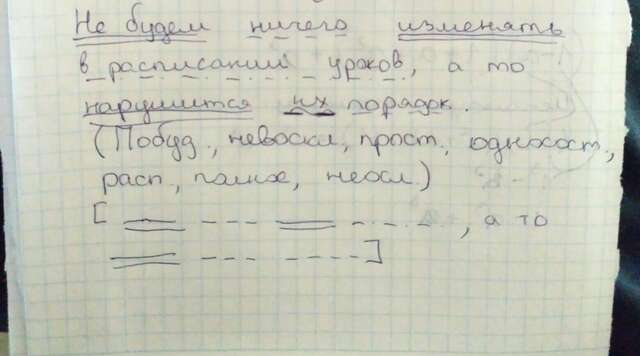 Не будем ничего изменять
в расписании уроков, а то
нарушится их порядок.
(Побуд., невоскл, прост., односост.,
расп., полное, неосл.)
[ , а то
]